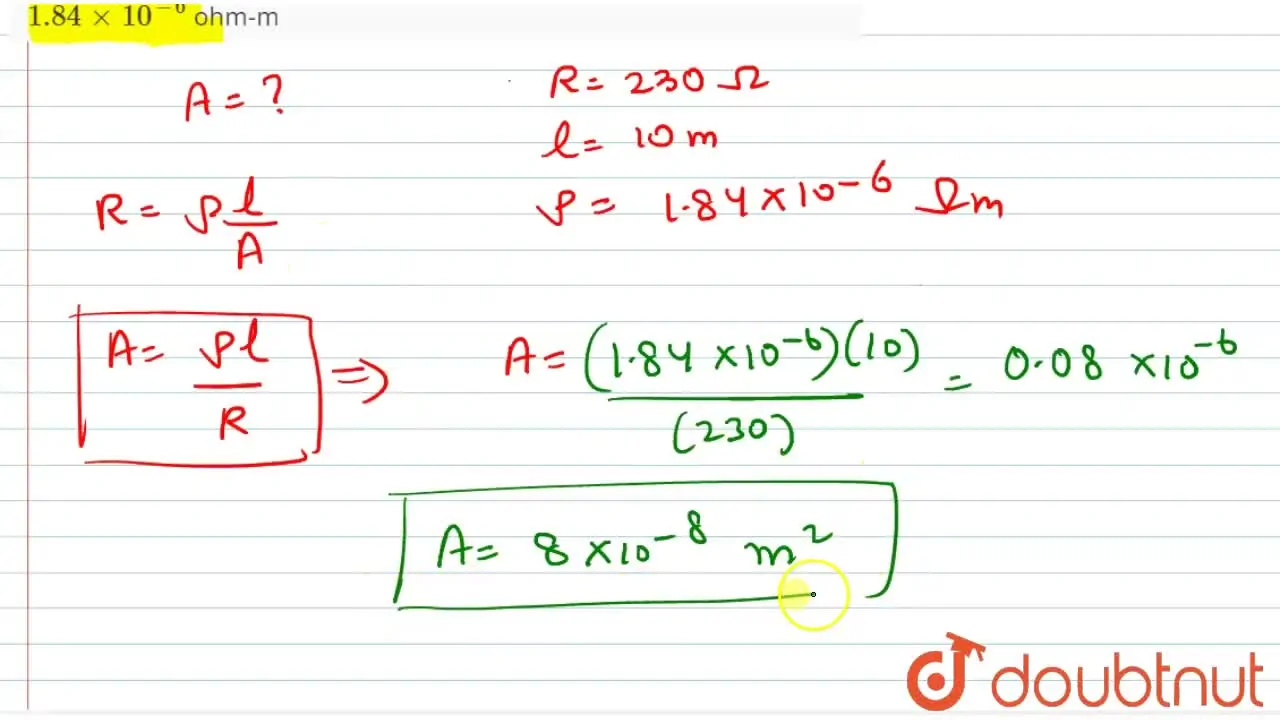 1.84 × 10⁻⁶ ohm-m
A = ?
R = 230 Ω
l = 10 m
ρ = 1.84 × 10⁻⁶ Ωm
R = ρ l/A
A = ρl/R ⇒
A = (1.84 × 10⁻⁶)(10)/(230) = 0.08 × 10⁻⁶
A = 8 × 10⁻⁸ m²
doubtnut